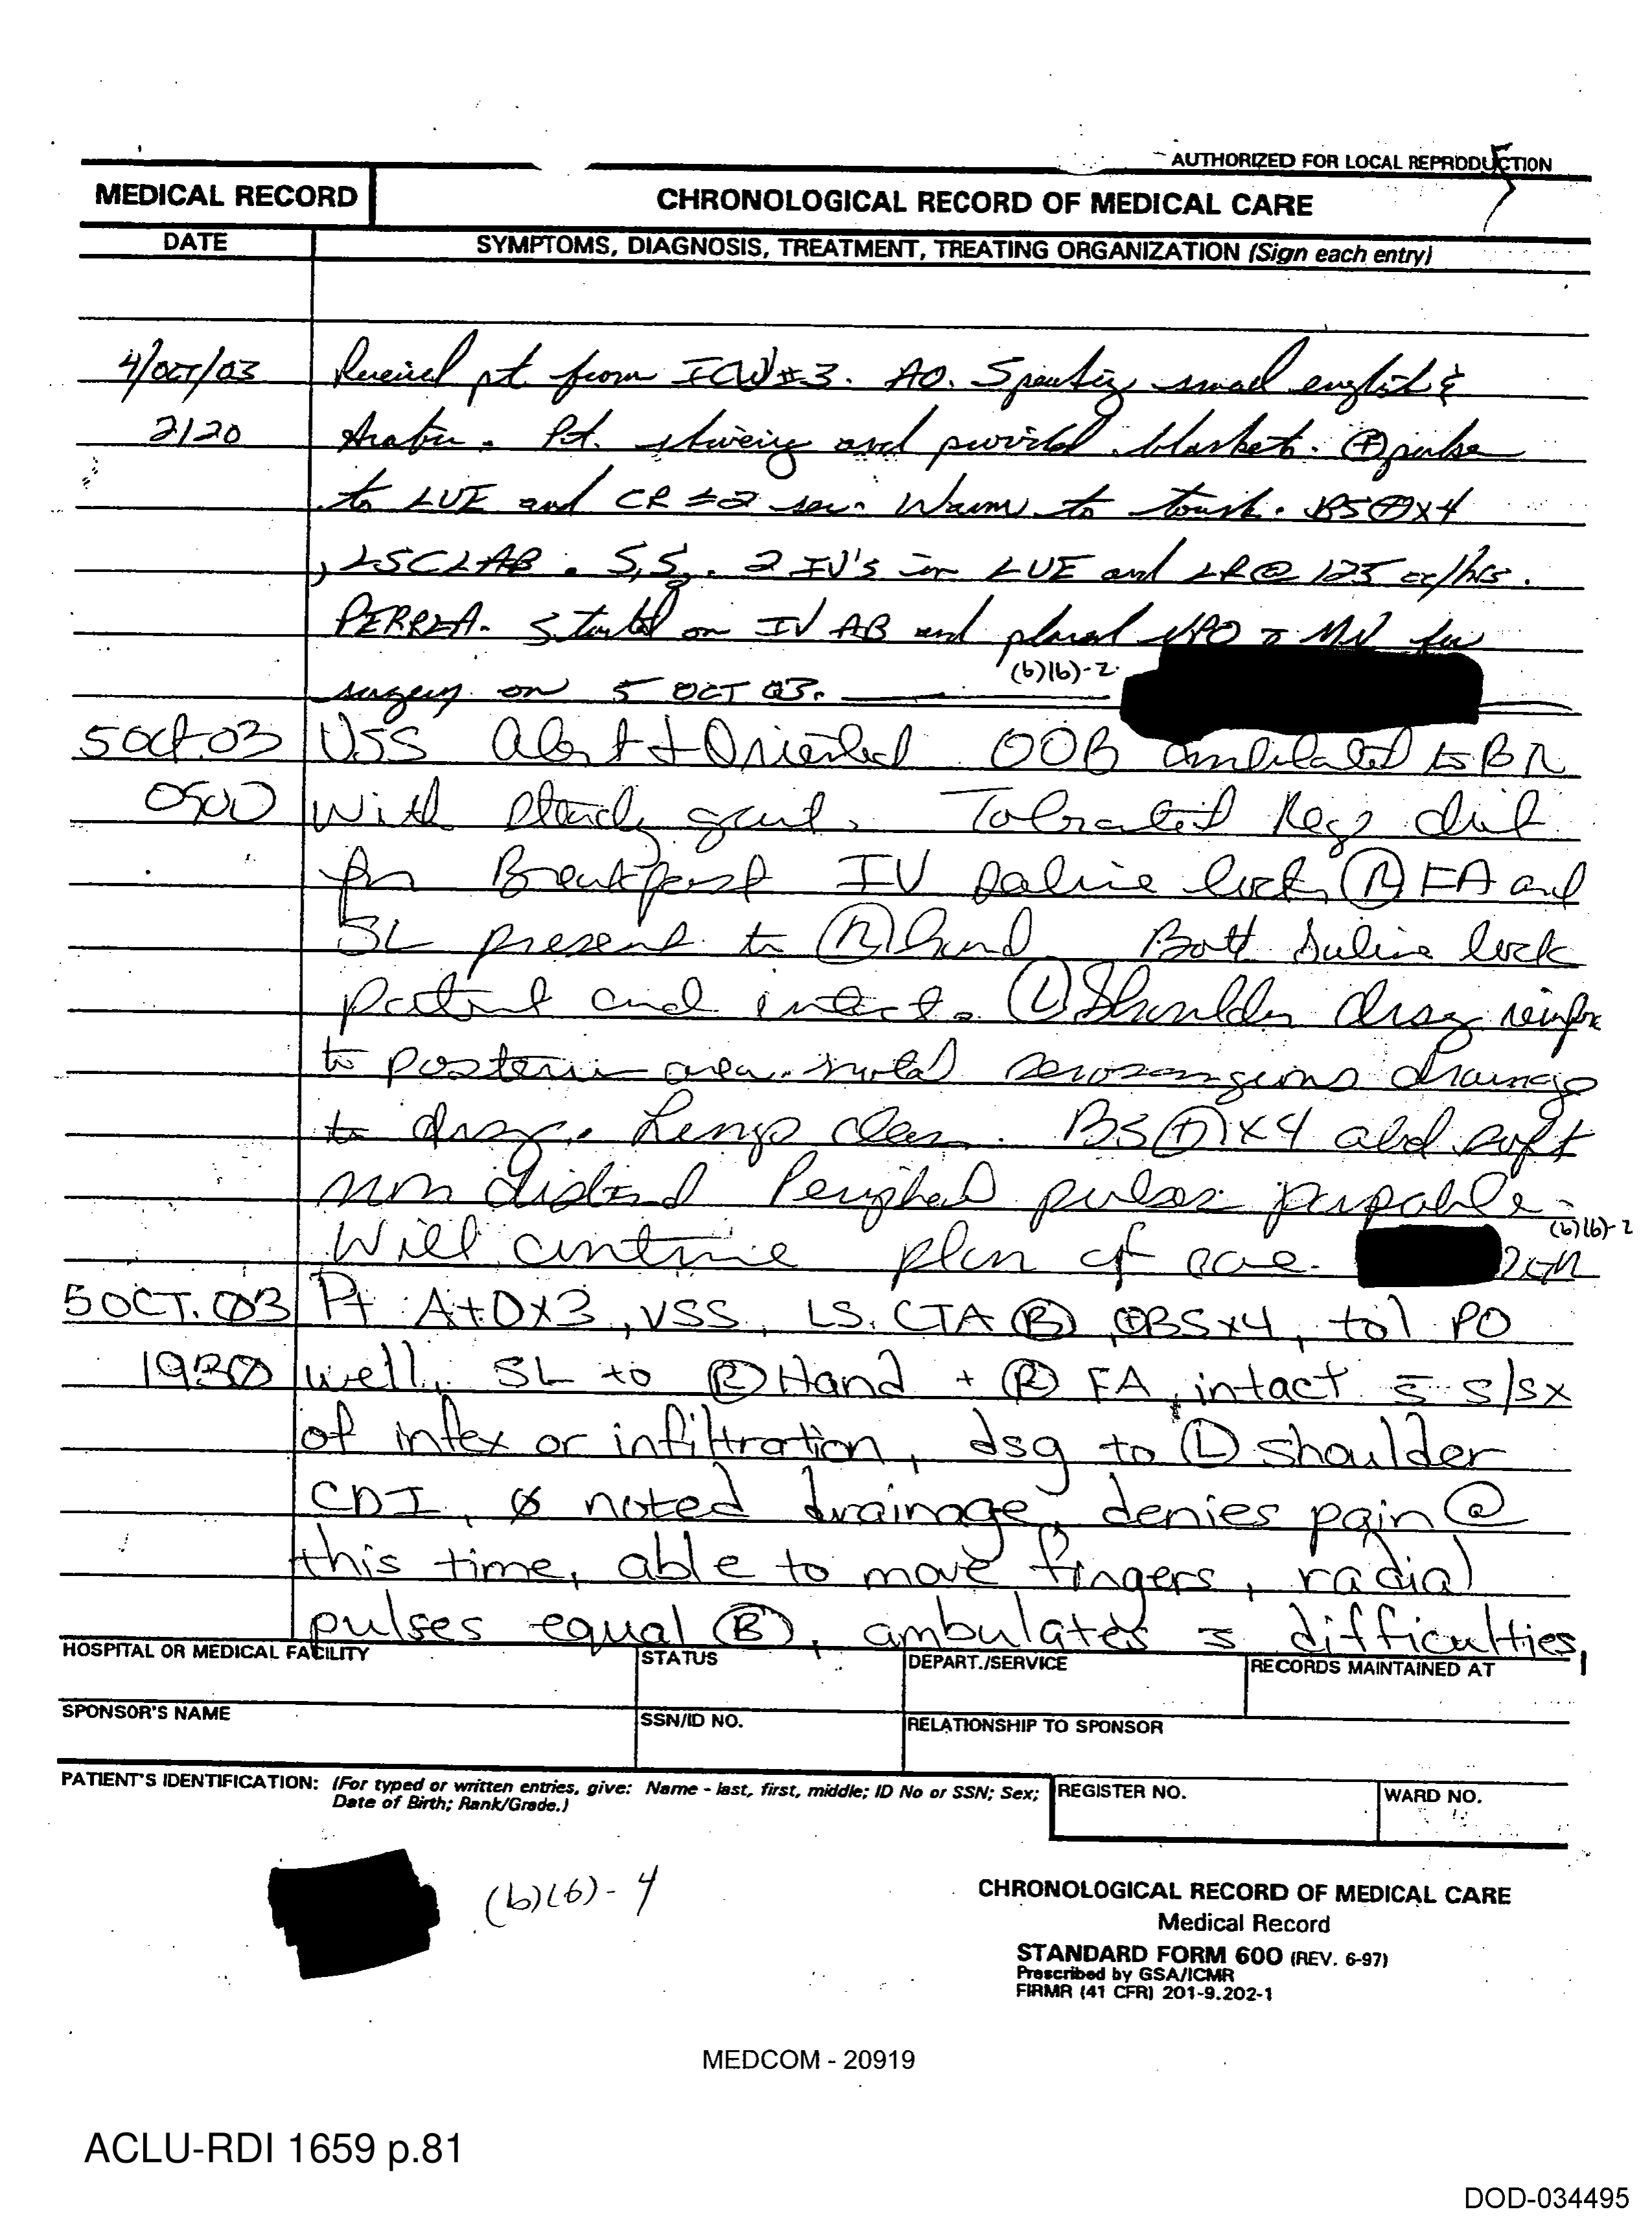 AUTHORIZED FOR LOCAL REPRODUCTION
5
MEDICAL RECORD
CHRONOLOGICAL RECORD OF MEDICAL CARE
DATE
SYMPTOMS, DIAGNOSIS, TREATMENT, TREATING ORGANIZATION (Sign each entry)
4/OCT/03 pt from ICW #3. AO. small english &
2120 Pt. and blanket. ⊕ pulse
to LUE and CR ≤2 sec. Warm to touch. BS⊕x4
, LSCLAB. 2 IV's in LUE and LR@ 125 cc/hrs.
PERRLA. Started on IV AB and placed NPO MN for
surgery on 5 OCT 03. (b)(6)-2
5 Oct 03 VSS Alert + Oriented OOB ambulated to BR
0500 With steady gait. Tolerated Reg diet
for Breakfast IV saline lock (R) FA and
SL present to (R) hand Both saline lock
patent and intact. (L) Shoulder drsg
to posterior area. noted drainage
to drsg. Lungs clear. BS⊕x4 abd soft
non distend Peripheral pulses
Will continue plan of care. (b)(6)-2
5 OCT. 03 Pt A+Ox3, VSS, LS. CTA (B), ⊕BSx4, tol PO
1930 well, SL to (R) Hand + (R) FA, intact s̄ s/sx
of infex or infiltration, dsg to (L) shoulder
CDI, ø noted drainage, denies pain @
this time, able to move fingers, radial
pulses equal (B), ambulates s̄ difficulties,
HOSPITAL OR MEDICAL FACILITY
STATUS
DEPART./SERVICE
RECORDS MAINTAINED AT
SPONSOR'S NAME
SSN/ID NO.
RELATIONSHIP TO SPONSOR
PATIENT'S IDENTIFICATION: (For typed or written entries, give: Name - last, first, middle; ID No or SSN; Sex;
Date of Birth; Rank/Grade.)
REGISTER NO.
WARD NO.
(b)(6)-4
CHRONOLOGICAL RECORD OF MEDICAL CARE
Medical Record
STANDARD FORM 600 (REV. 6-97)
Prescribed by GSA/ICMR
FIRMR (41 CFR) 201-9.202-1
MEDCOM - 20919
ACLU-RDI 1659 p.81
DOD-034495